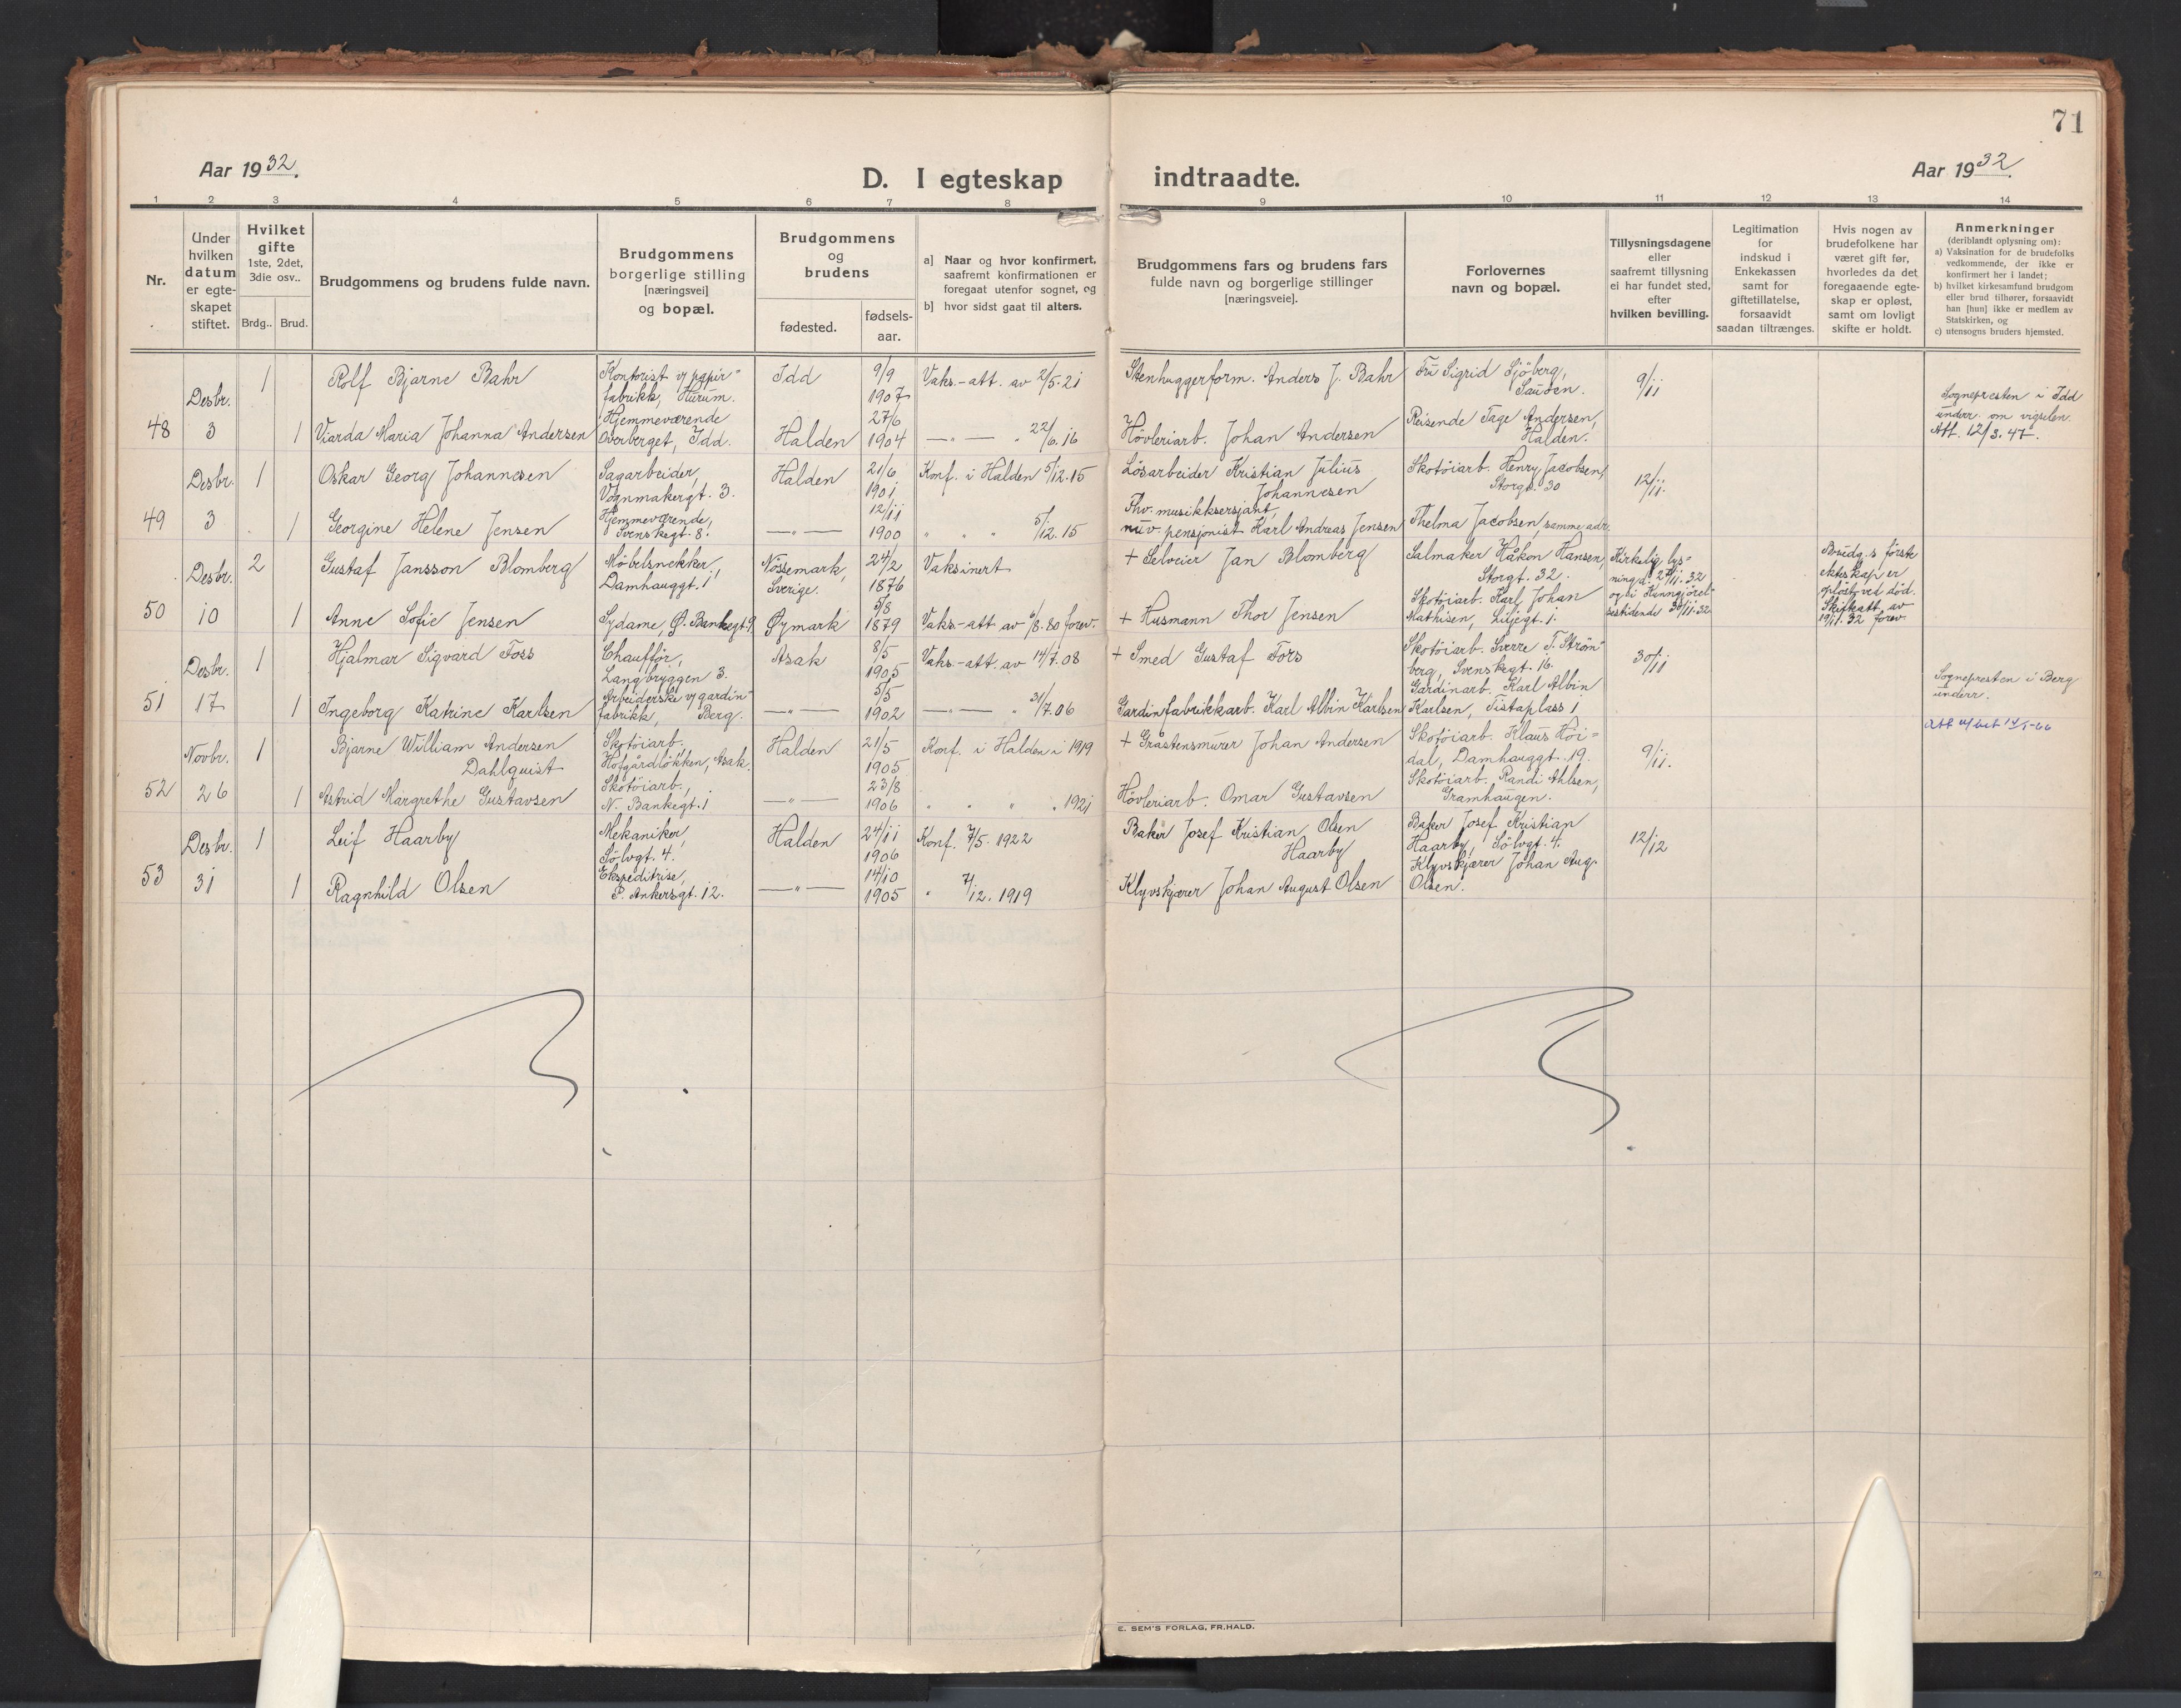 71
Aar 1932.
D. I egteskap indtraadte.
Aar 1932.
1 2 3 4 5 6 7 8 9 10 11 12 13 14
Nr.
Under hvilken datum er egteskapet stiftet.
Hvilket gifte 1ste, 2det, 3die osv..
Brdg.. Brud.
Brudgommens og brudens fulde navn.
Brudgommens borgerlige stilling [næringsvei] og bopæl.
Brudgommens og brudens
fødested.
fødsels-aar.
a] Naar og hvor konfirmert, saafremt konfirmationen er foregaat utenfor sognet, og
b] hvor sidst gaat til alters.
Brudgommens fars og brudens fars fulde navn og borgerlige stillinger [næringsveie].
Forlovernes navn og bopæl.
Tillysningsdagene eller saafremt tillysning ei har fundet sted, efter hvilken bevilling.
Legitimation for indskud i Enkekassen samt for giftetillatelse, forsaavidt saadan tiltrænges.
Hvis nogen av brudefolkene har været gift før, hvorledes da det foregaaende egteskap er opløst, samt om lovligt skifte er holdt.
Anmerkninger (deriblandt oplysning om):
a) Vaksination for de brudefolks vedkommende, der ikke er konfirmert her i landet;
b) hvilket kirkesamfund brudgom eller brud tilhører, forsaavidt han [hun] ikke er medlem av Statskirken, og
c) utensogns bruders hjemsted.
48 Desbr. 3
1 Rolf Bjarne Bahr Kontorist v/ papirfabrikk, Hurum. Idd 9/9 1907 Vaks.-att. av 2/5.21 Stenhuggerform. Anders J. Bahr Fru Sigrid Sjöberg, Sauöen. 9/11
1 Viarda Maria Johanna Andersen Hjemmeværende Overberget, Idd. Halden 27/6 1904 — " — " 22/6.16 Hövleriarb. Johan Andersen Reisende Tage Andersen, Halden.
Sognepresten i Idd underr. om vigselen. Att. 12/3.47.
49 Desbr. 3
1 Oskar Georg Johannesen Sagarbeider, Vognmakergt. 3. Halden 21/6 1901 Konf. i Halden 5/12.15 Lösarbeider Kristian Julius Johannesen Skotöiarb. Henry Jacobsen, Storgt. 30 12/11.
1 Georgine Helene Jensen Hjemmeværende, Svenskegt. 8. — " — 12/11 1900 " " " 5/12.15 Fhv. musikksersjant, nuv. pensjonist Karl Andreas Jensen Thelma Jacobsen, samme adr.
50 Desbr. 10
2 Gustaf Jansson Blomberg Möbelsnekker, Damhauggt. 1 Nössemark, Sverige. 24/2 1876 Vaksinert + Selveier Jan Blomberg Salmaker Håkon Hansen, Storgt. 32. Kirkelig lysning d. 27/11.32 og i Kunngjörelsestidende 30/11.32 Brudg.s förste ekteskap er oplöst ved död. Skifteatt. av 19/11.32 forev.
1 Anne Sofie Jensen Sydame, Ø. Bankegt 9. Øymark 5/8 1879 Vaks.-att av 6/8.80 forev. + Husmann Thor Jensen Skotöiarb. Karl Johan Mathisen, Liljegt. 1.
51 Desbr. 17
1 Hjalmar Sigvard Foss Chaufför, Langbryggen 3. Asak 8/5 1905 Vaks.-att. av 14/7.08 + Smed Gustaf Fors Skotöiarb. Sverre T. Strömberg, Svenskegt. 16. 30/11
1 Ingeborg Katrine Karlsen Arbeiderske v/ gardinfabrikk, Berg. — " — 5/5 1902 — " — " 31/7.06 Gardinfabrikkarb. Karl Albin Karlsen Gardinarb. Karl Albin Karlsen, Tistaplass 1
Sognepresten i Berg underr.
52 Novbr. 26
1 Bjarne William Andersen Dahlquist Skotöiarb. Hofgårdlökken, Asak. Halden 21/5 1905 Konf. i Halden i 1919 + Gråstensmurer Johan Andersen Skotöiarb. Klaus Höidal, Damhauggt. 19. 9/11.
1 Astrid Margrethe Gustavsen Skotöiarb., N. Bankegt. 1 — " — 23/8 1906 " " " " 1921 Hövleriarb. Omar Gustavsen Skotöiarb. Randi Ahlsen, Gramhaugen.
53 Desbr. 31
1 Leif Haarby Mekaniker, Sölvgt. 4. Halden 24/11 1906 Konf. 7/5. 1922 Baker Josef Kristian Olsen Haarby Baker Josef Kristian Haarby, Sölvgt. 4. 12/12
1 Ragnhild Olsen Ekspeditrise, P. Ankersgt. 12. — " — 14/10 1905 " 7/12. 1919 Klyvskjærer Johan August Olsen Klyvskjærer Johan Aug. Olsen.
E. SEM'S FORLAG, FR.HALD.